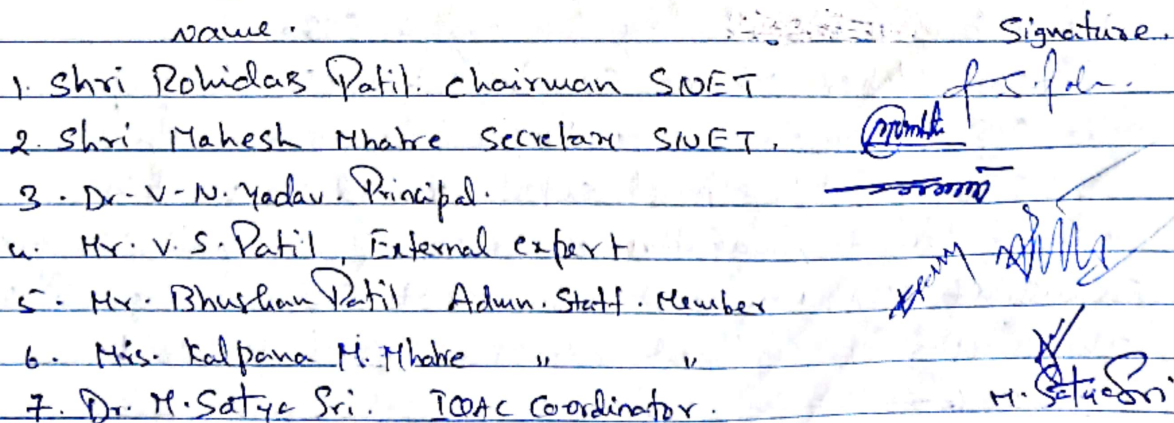 Name. Signature.
1. Shri Rohidas Patil. Chairman SNET
2. Shri Mahesh Mhatre Secretary SNET.
3. Dr. V. N. Yadav. Principal.
4. Mr. V. S. Patil, External expert.
5. Mr. Bhushan Patil Admn. Staff. Member
6. Mrs. Kalpana M. Mhatre " "
7. Dr. M. Satya Sri. IQAC Coordinator. M. SatyaSri